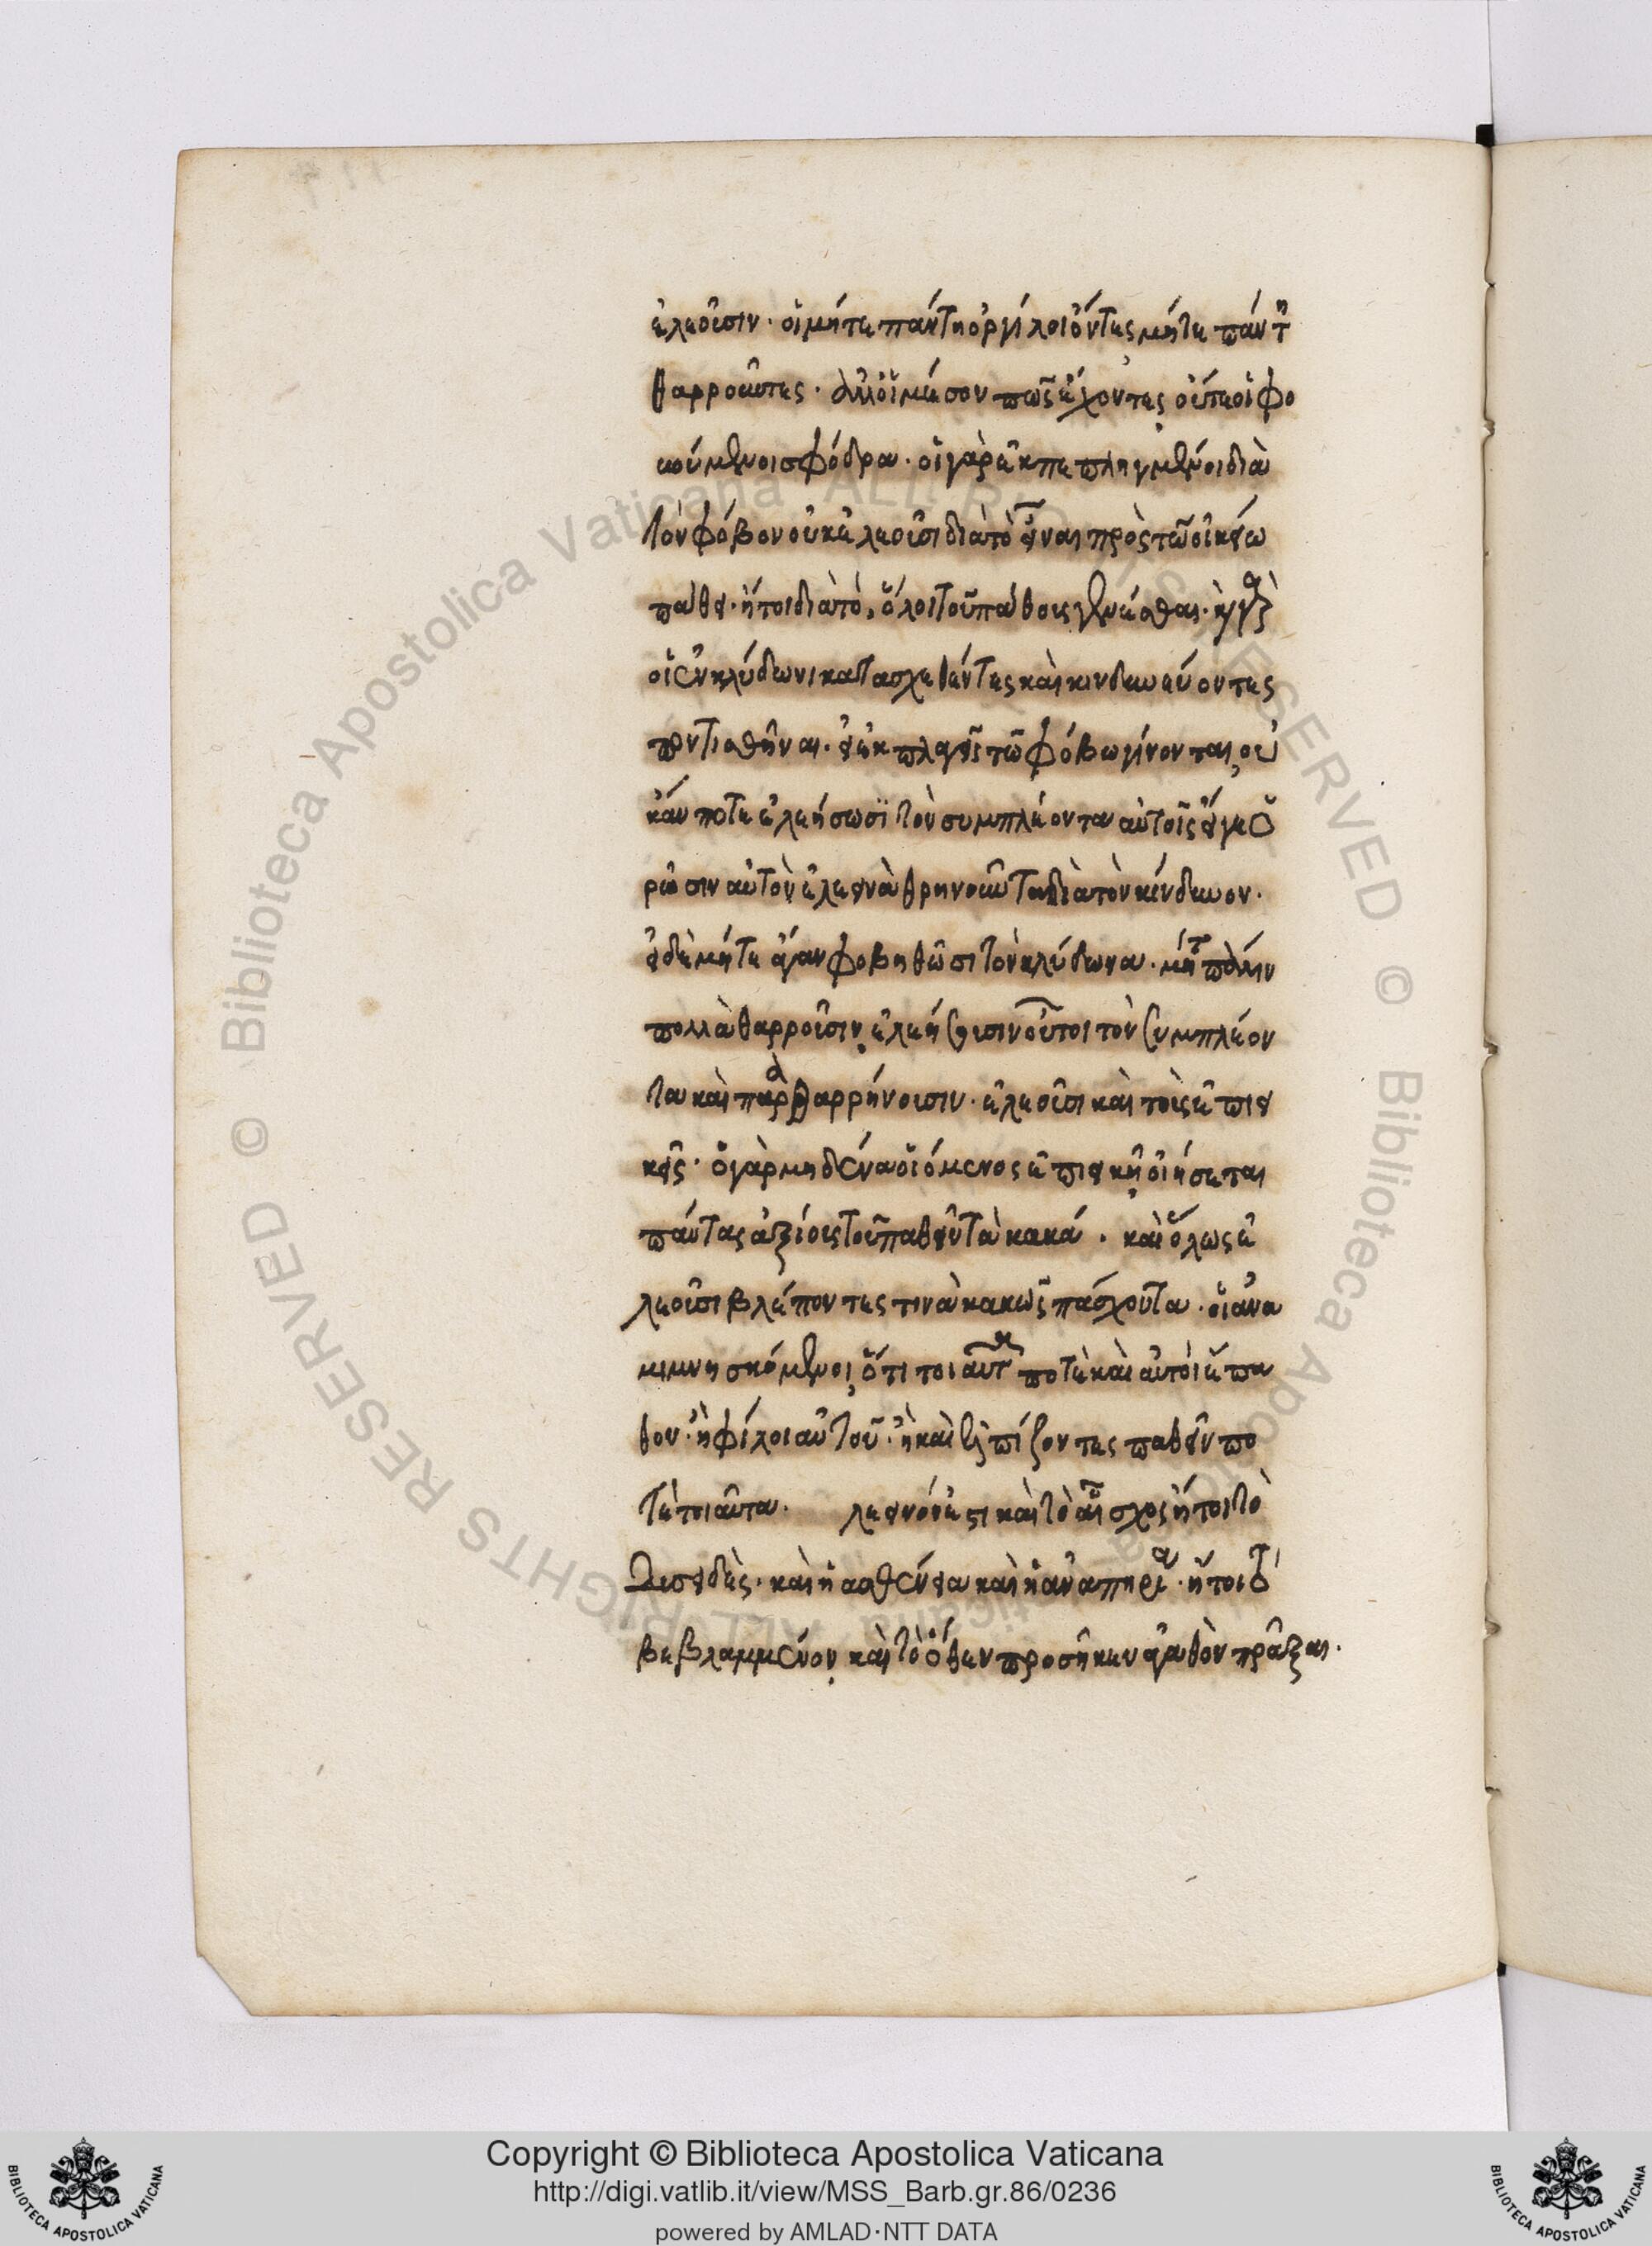 ἐλεοῦσιν. οἱ μήτε πάντη ὀργίλοι ὄντες μήτε πάντη
θαρροῦντες. ἀλλ οἱ μέσον πως ἔχοντες οὔτε οἱ φο
βούμενοι σφόδρα. οἱ γὰρ ἐκπεπληγμένοι διὰ
τὸν φόβον οὐκ ἐλεοῦσι διὰ τὸ εἶναι πρὸς τῶ οἰκείω
πάθει. ἤτοι διὰ τὸ, ὅλοι τοῦ πάθους γενέσθαι.
οἱ ἐν κλύδωνι κατασχεθέντες καὶ κινδυνεύοντες
ποντισθῆναι. εἰ ἐκπλαγεῖς τῶ φόβω γίνονται, οὐ
κάν ποτε ἐλεήσωσι τὸν συμπλέοντα αὐτοῖς εἴγε ὁ
ρῶσιν αὐτὸν ἐλεεινὰ θρηνοῦντα διὰ τὸν κίνδυνον.
εἰ δὲ μήτε ἄγαν φοβηθῶσι τὸν κλύδωνα. μήτε πάλιν
πολλὰ θαρροῦσιν, ἐλεήσουσιν οὗτοι τὸν συμπλέον
τα καὶ παραθαρρήνουσιν. ἐλεοῦσι καὶ τοὺς ἐπιει
κεῖς. ὁ γὰρ μηδένα οἰόμενος ἐπιεικῆ, οἰήσεται
πάντας ἀξίους τοῦ παθεῖν τὰ κακά. καὶ ὅλως ἐ
λεοῦσι βλέποντες τινὰ κακῶς πάσχοντα. οἱ ἀνα
μιμνησκόμενοι, ὅτι τοιαῦτα ποτὲ καὶ αὐτοὶ ἔπα
θον. ἢ φίλοι αὐτοῦ. ἢ καὶ ἐλπίζοντες παθεῖν πο
τὲ τοιαῦτα. λεεινόν ἐστι καὶ τὸ αἶσχος ἤτοι τὸ
δυσειδὲς. καὶ ἡ ἀσθένεια καὶ ἡ ἀναπηρία. ἤτοι τὸ
βεβλαμμένον, καὶ τὸ ὅθεν προσῆκεν ἀγαθὸν πρᾶξαι.
Copyright © Biblioteca Apostolica Vaticana
http://digi.vatlib.it/view/MSS_Barb.gr.86/0236
powered by AMLAD·NTT DATA